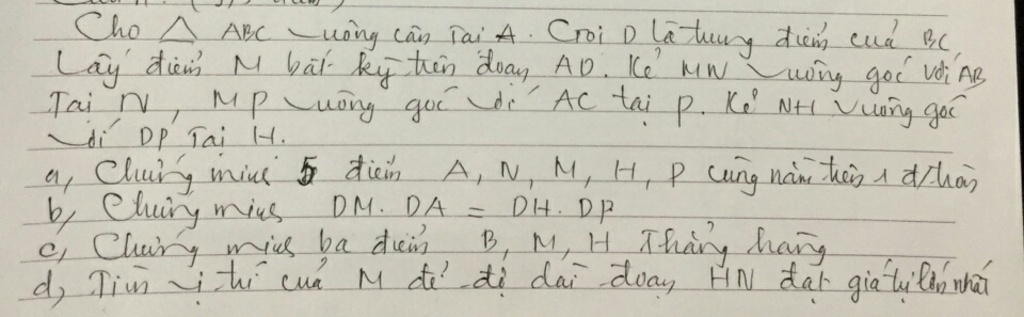 Cho △ ABC vuông cân tại A. Gọi D là trung điểm của BC
Lấy điểm M bất kỳ trên đoạn AD. Kẻ MN vuông góc với AB
Tại N, MP vuông góc với AC tại P. Kẻ NH vuông góc
với DP tại H.
a, Chứng minh 5 điểm A, N, M, H, P cùng nằm trên 1 đ/tròn
b, Chứng minh DM. DA = DH. DP
c, Chứng minh ba điểm B, M, H Thẳng hàng
d, Tìm vị trí của M để độ dài đoạn HN đạt giá trị lớn nhất